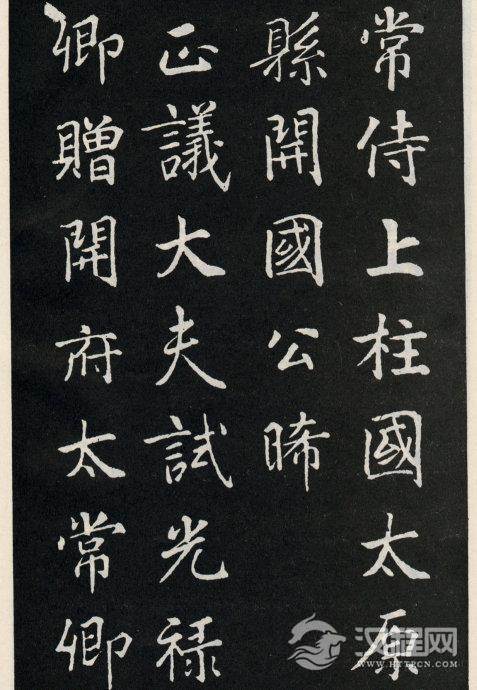 常侍上柱國太原
縣開國公晞
正議大夫試光祿
卿贈開府太常卿
汉程网
WWW.HTTPCN.COM